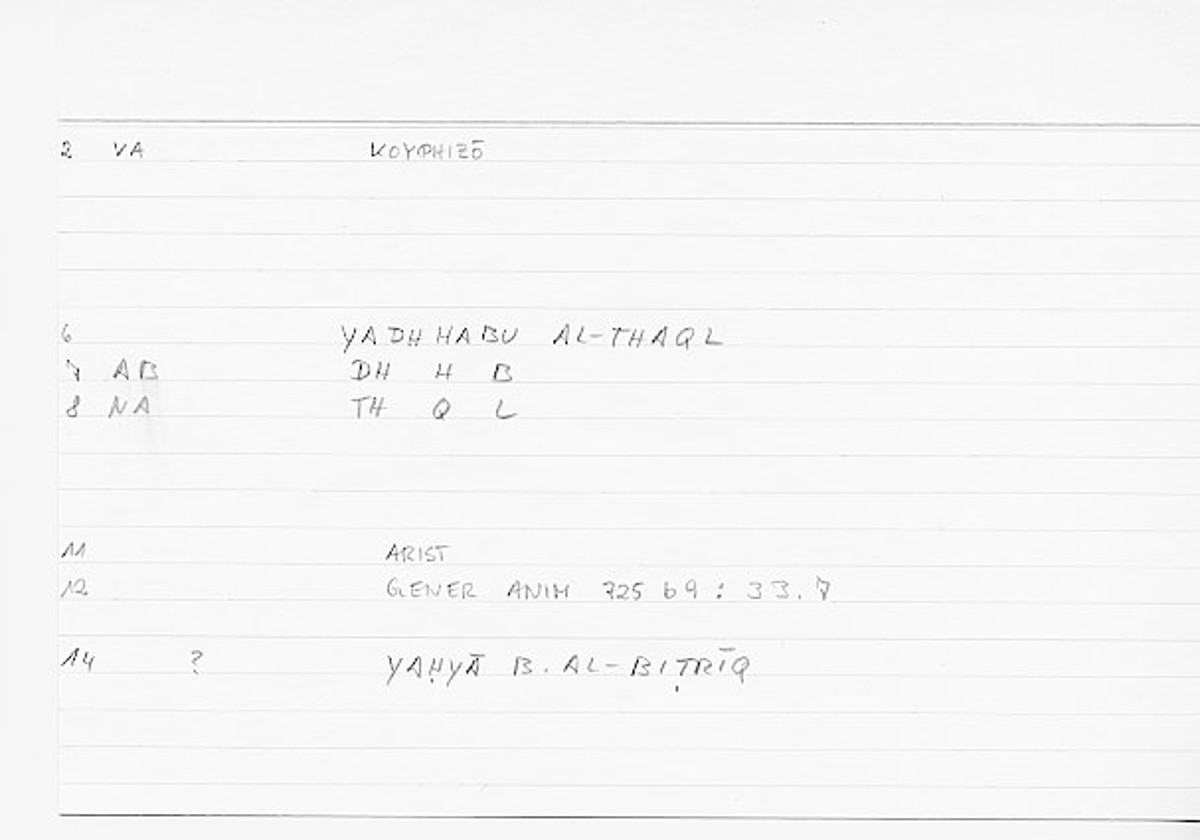 2 VA KOYPHIZŌ
6 YADHHABU AL-THAQL
7 AB DH H B
8 NA TH Q L
11 ARIST
12 GENER ANIM 725 b9 : 33.7
14 ? YAḤYĀ B. AL-BIṬRĪQ